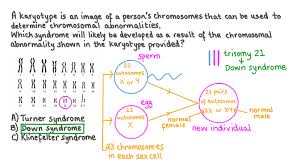 A karyotype is an image of a person's chromosomes that can be used to
determine chromosomal abnormalities.
Which syndrome will likely be developed as a result of the chromosomal
abnormality shown in the karyotype provided?
trisomy 21
Down syndrome
sperm
22
autosomes
X or Y
egg
22
autosomes
X
22 pairs
of autosomes
XX or XY
normal
female
normal
male
new individual
22
A) Turner syndrome
B) Down syndrome
C) Klinefelter syndrome
23 chromosomes
in each sex cell